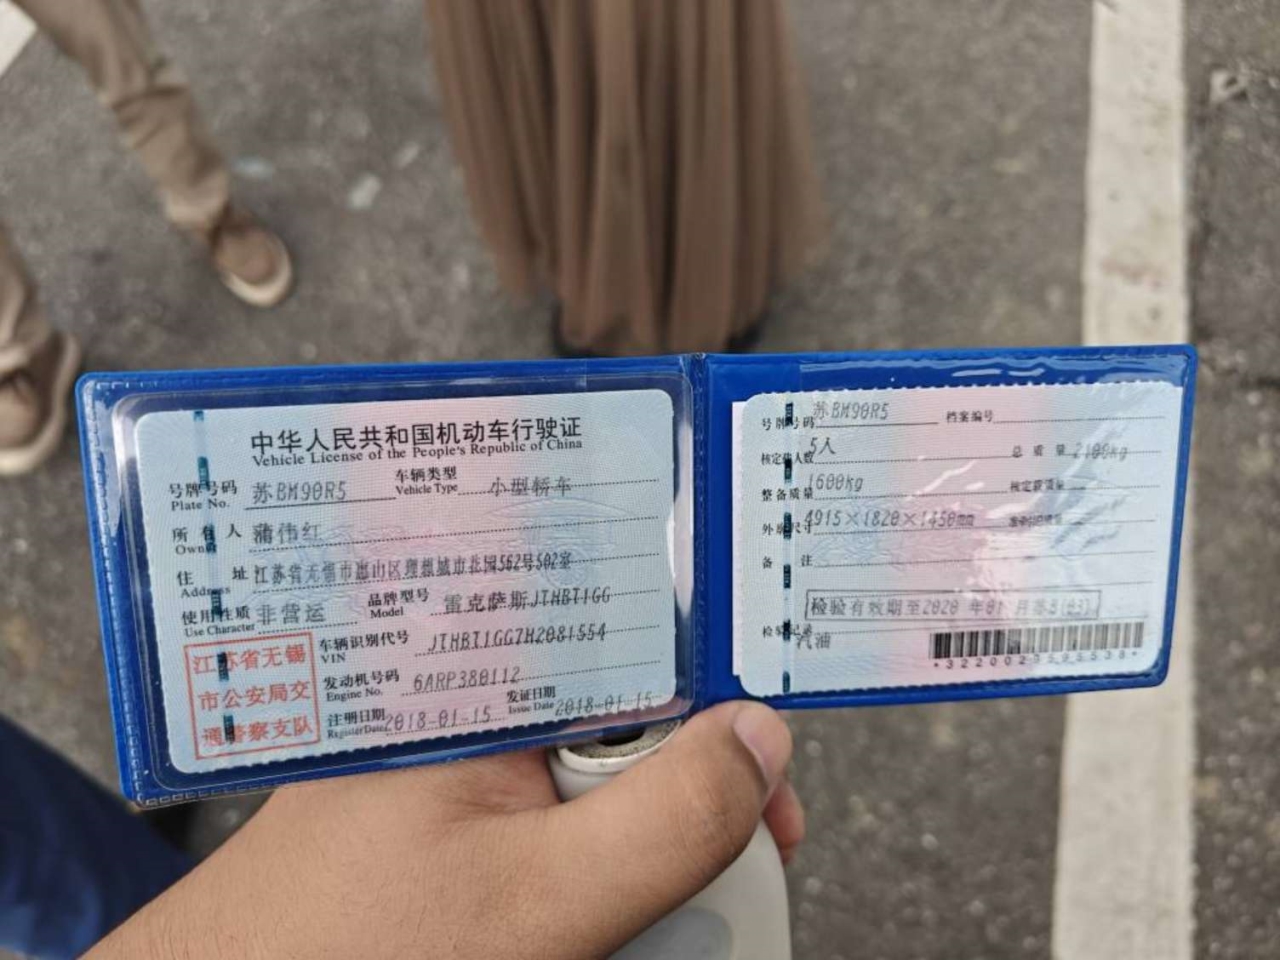 中华人民共和国机动车行驶证
Vehicle License of the People's Republic of China
号牌号码 苏BM90R5 车辆类型 小型轿车
Plate No. Vehicle Type
所有人 蒲伟红
Owner
住址 江苏省无锡市惠山区理想城市花园562号502室
Address
使用性质 非营运 品牌型号 雷克萨斯JTHBT1GG
Use Character Model
江苏省无锡
市公安局交
通警察支队
车辆识别代号 JTHBT1GG7H2081554
VIN
发动机号码 6ARP380112
Engine No.
注册日期 2018-01-15 发证日期 2018-01-15
Register Date Issue Date
号牌号码 苏BM90R5 档案编号
核定载人数 5人 总质量 2100kg
整备质量 1600kg 核定载质量
外廓尺寸 4915×1820×1450mm
备注
检验有效期至2020年01月
检验记录
汽油